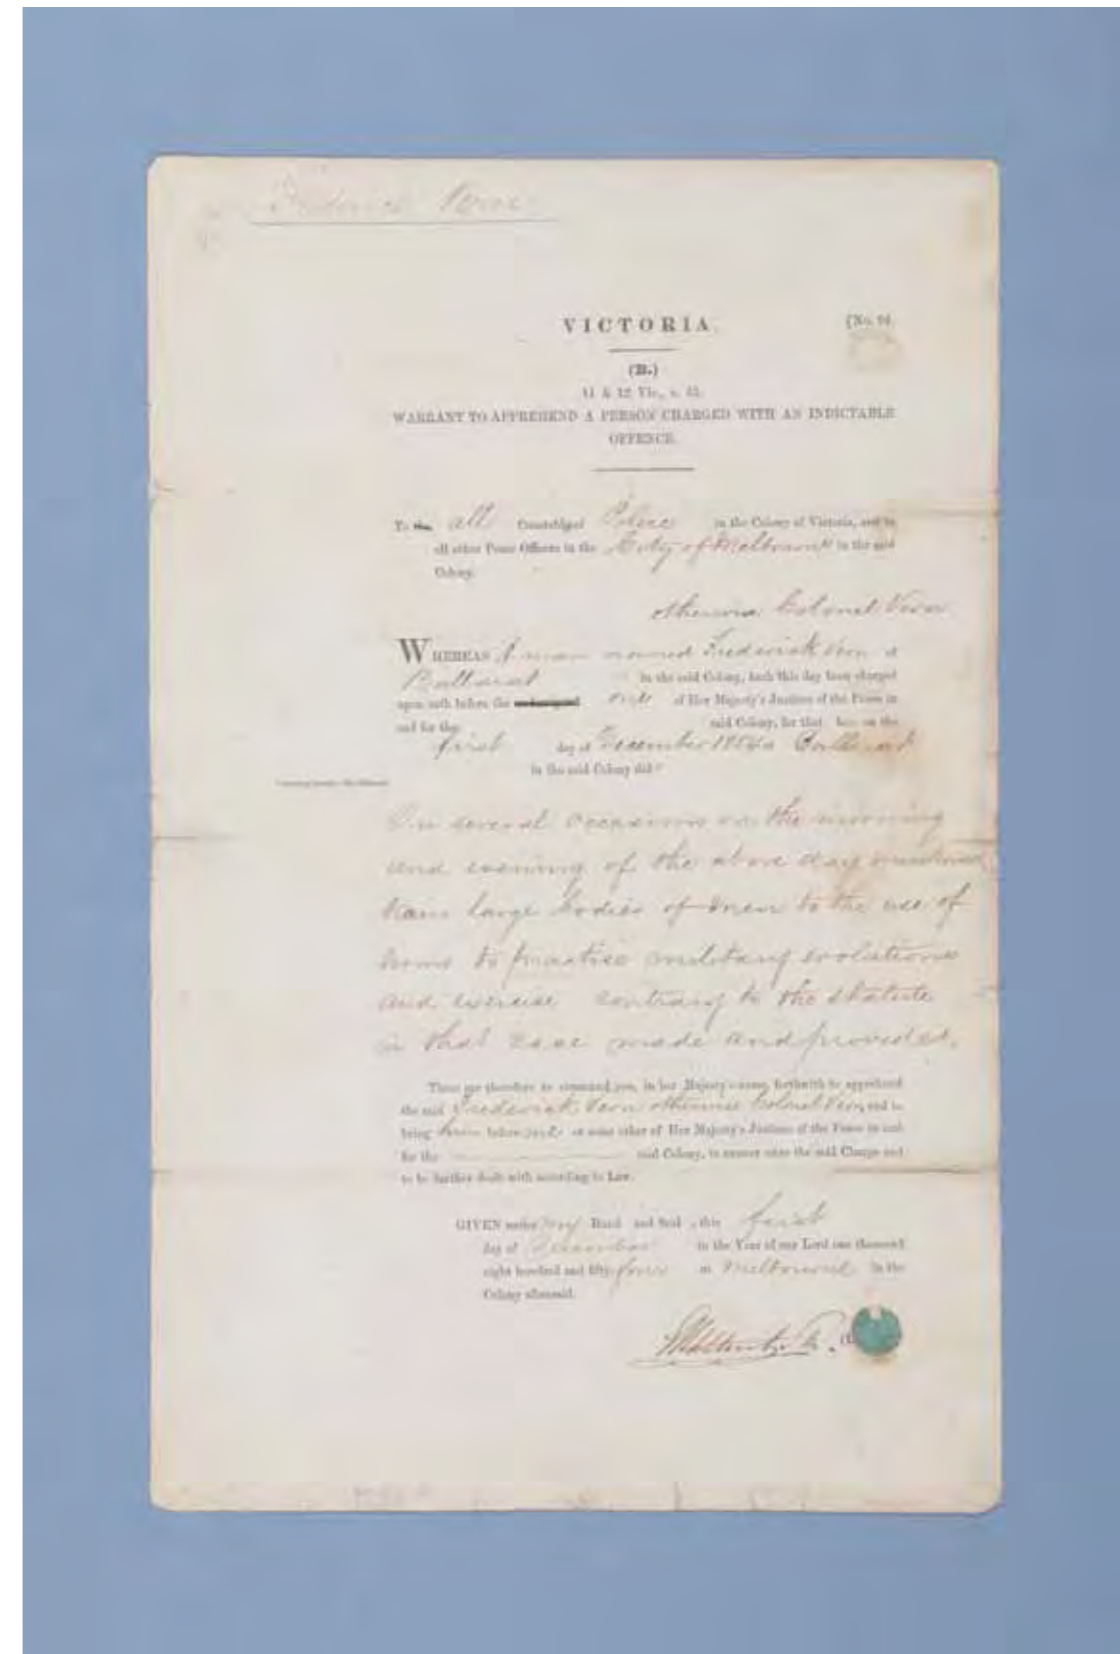 Frederick Verne
VICTORIA.
(No. 94.
(B.)
11 & 12 Vic., c. 42.
WARRANT TO APPREHEND A PERSON CHARGED WITH AN INDICTABLE
OFFENCE.
To the all Constables of Police in the Colony of Victoria, and to
all other Peace Officers in the City of Melbourne in the said
Colony.
otherwise Colonel Vern
WHEREAS A man named Frederick Vern
Ballarat in the said Colony, hath this day been charged
upon oath before the undersigned one of Her Majesty's Justices of the Peace in
and for the said Colony, for that he on the
first day of December 1854 Ballarat
in the said Colony did
On several occasions on the morning
and evening of the above day
train large bodies of men to the use of
arms to practise military evolutions
and exercise contrary to the statute
in that case made and provided.
These are therefore to command you, in her Majesty's name, forthwith to apprehend
the said Frederick Vern otherwise Colonel Vern, and to
bring him before me or some other of Her Majesty's Justices of the Peace in and
for the said Colony, to answer unto the said Charge and
to be further dealt with according to Law.
GIVEN under my Hand and Seal, this first
day of December in the Year of our Lord one thousand
eight hundred and fifty four at Melbourne in the
Colony aforesaid.